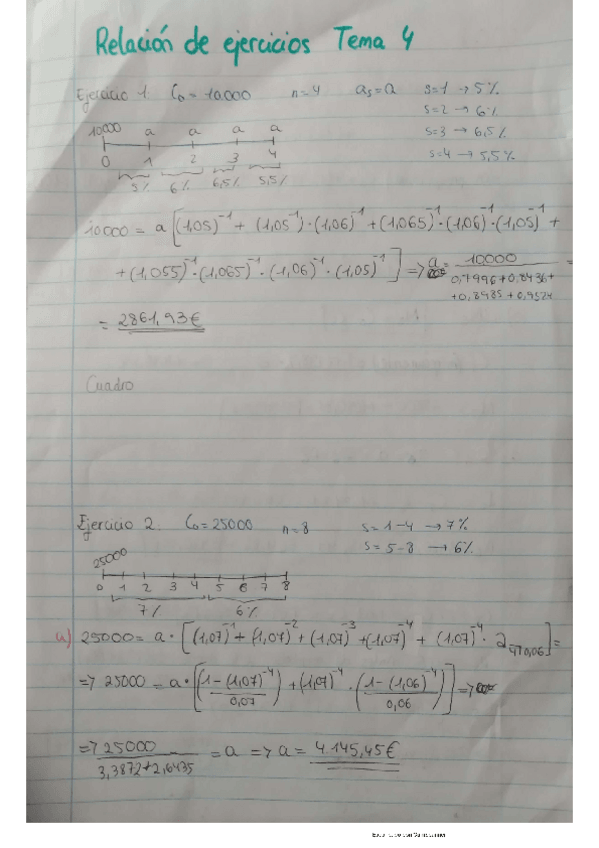 Relación de ejercicios Tema 4
Ejercicio 1. C₀ = 10000 n=4 aₛ=a s=1 → 5%
s=2 → 6%
s=3 → 6,5%
s=4 → 5,5%
10000 a a a a
0 1 2 3 4
5% 6% 6,5% 5,5%
10000 = a [(1,05)⁻¹ + (1,05⁻¹)·(1,06)⁻¹ + (1,065)⁻¹·(1,06)⁻¹·(1,05)⁻¹ +
+ (1,055)⁻¹·(1,065)⁻¹·(1,06)⁻¹·(1,05)⁻¹] => a = 10000 / 0,7996+0,8436+ +0,8985+0,9524 =
= 2861,93€
Cuadro
Ejercicio 2. C₀=25000 n=8 s=1-4 → 7%
s=5-8 → 6%
25000
0 1 2 3 4 5 6 7 8
7% 6%
a) 25000 = a · [(1,07)⁻¹ + (1,07)⁻² + (1,07)⁻³ + (1,07)⁻⁴ + (1,07)⁻⁴ · a₄⌉0,06] =
=> 25000 = a · [(1-(1,07)⁻⁴ / 0,07) + (1,07)⁻⁴ · (1-(1,06)⁻⁴ / 0,06)] =>
=> 25000 / 3,3872+2,6435 = a => a = 4.145,45€